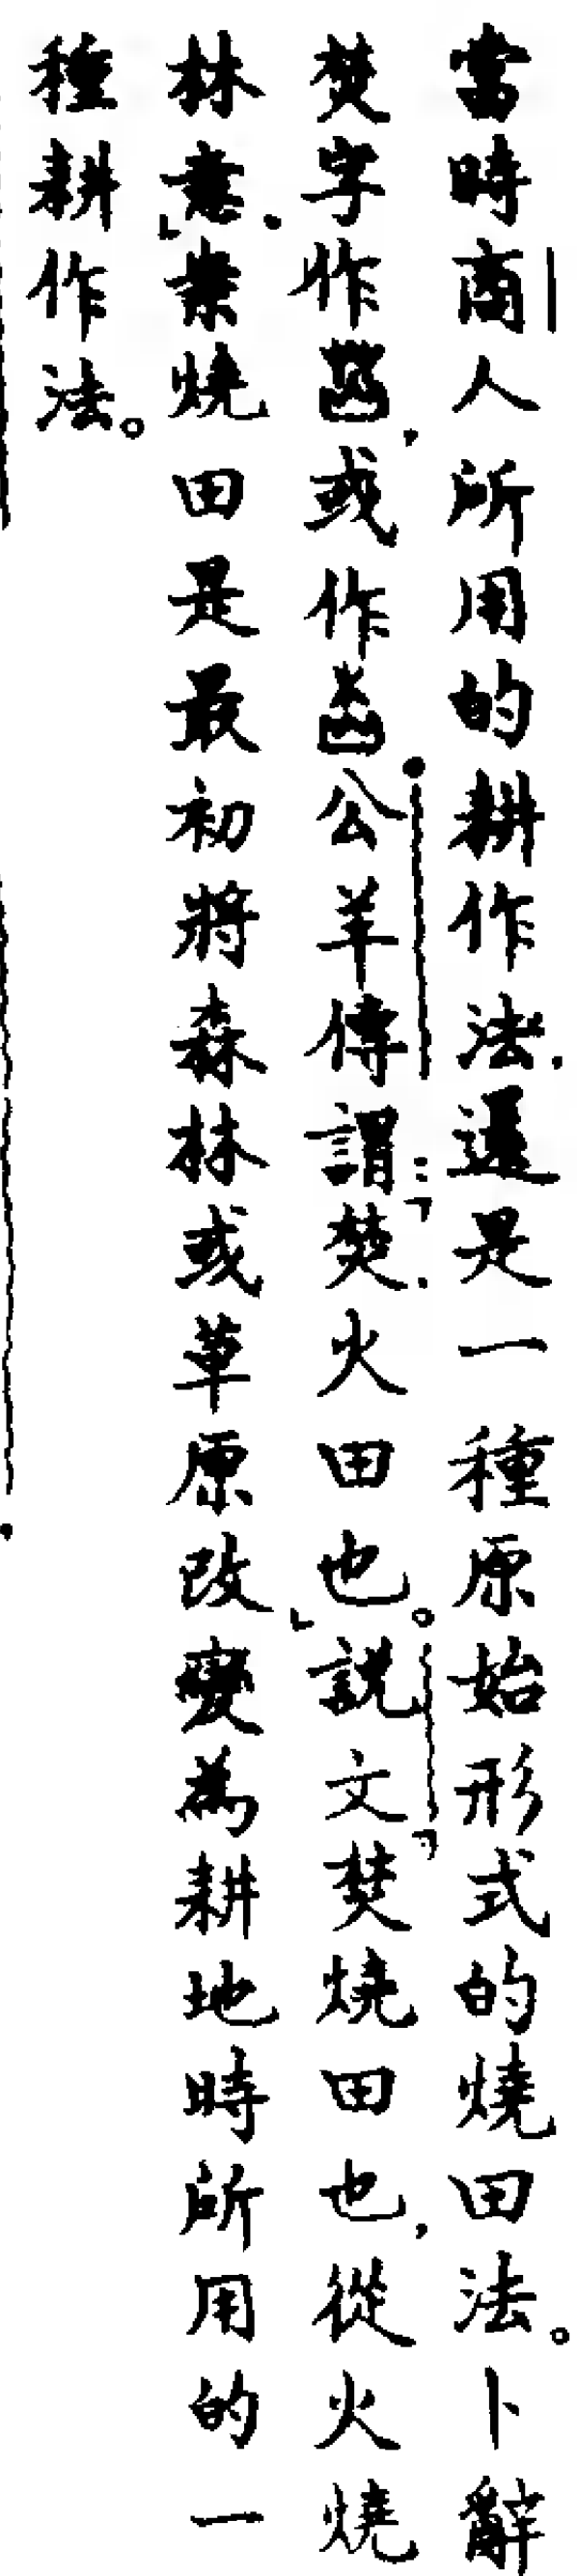 當時商人所用的耕作法，還是一種原始形式的燒田法。卜辭
焚字作，或作公羊傳謂：「焚，火田也。」說文「焚燒田也，從火燒
林意。」案燒田是最初將森林或草原改變為耕地時所用的一
種耕作法。